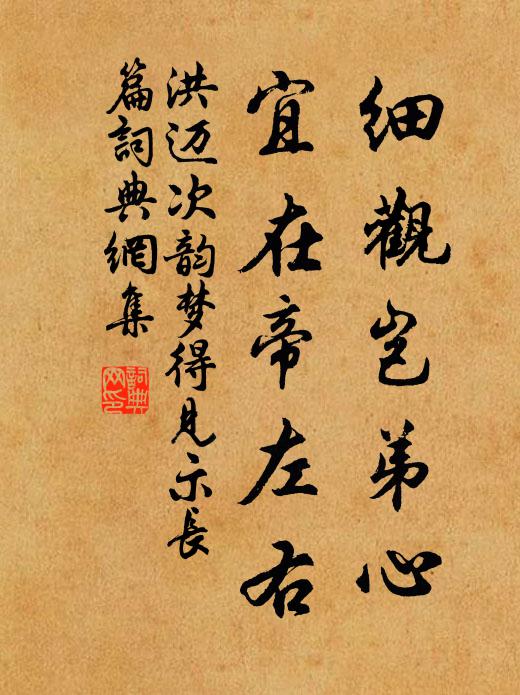 细觀岂弟心
宜在帝左右
洪迈次韵梦得見示長
篇詞典網集
詞典
网印